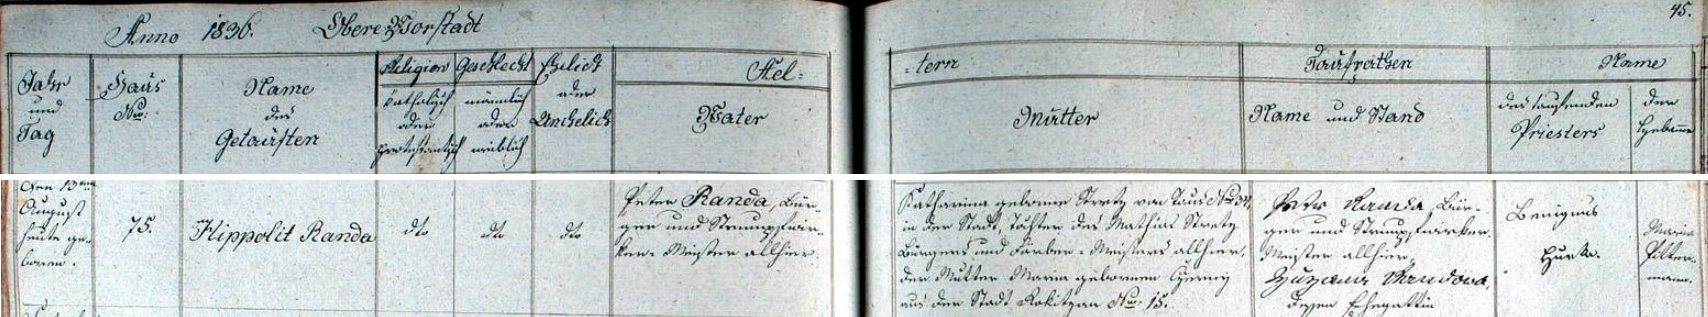 Anno 1836. Obere Vorstadt
45.
Jahr
und
Tag
Haus
Nro:
Name
des
Getauften
Religion
katholisch
oder
protestantisch
Geschlecht
männlich
oder
weiblich
Ehelich
oder
Unehelich
Ael-
Vater
-tern
Mutter
Taufpathen
Name und Stand
Name
des taufenden
Priesters
der
Hebamme
Den 13ten
August
heute ge-
boren.
75.
Hippolit Randa
dto
dto
dto
Peter Randa, Bür-
ger und Strumpfwir-
ker-Meister allhier.
Katharina geborene Stretz von Haus Nro 37,
in der Stadt, Tochter des Mathias Stretz
Bürgers und Färber-Meisters allhier,
der Mutter Maria geborenen Czerny
aus der Stadt Rokitzan Nro. 15.
Peter Randa, Bür-
ger und Strumpfwirker-
Meister allhier,
Zuzana Randowa,
dessen Ehegattin
Benignus
Hurka.
Maria
Pitter-
mann.